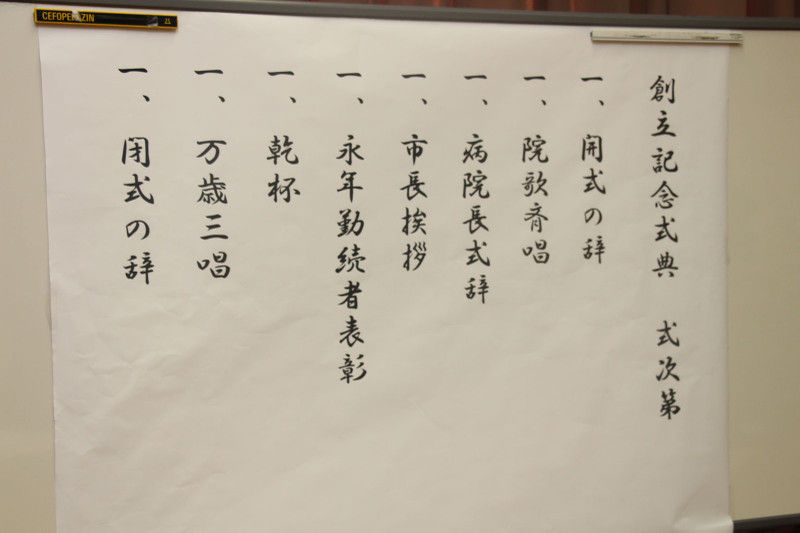 創立記念式典　式次第
一、開式の辞
一、院歌斉唱
一、病院長式辞
一、市長挨拶
一、永年勤続者表彰
一、乾杯
一、万歳三唱
一、閉式の辞
CEFOPERAZIN